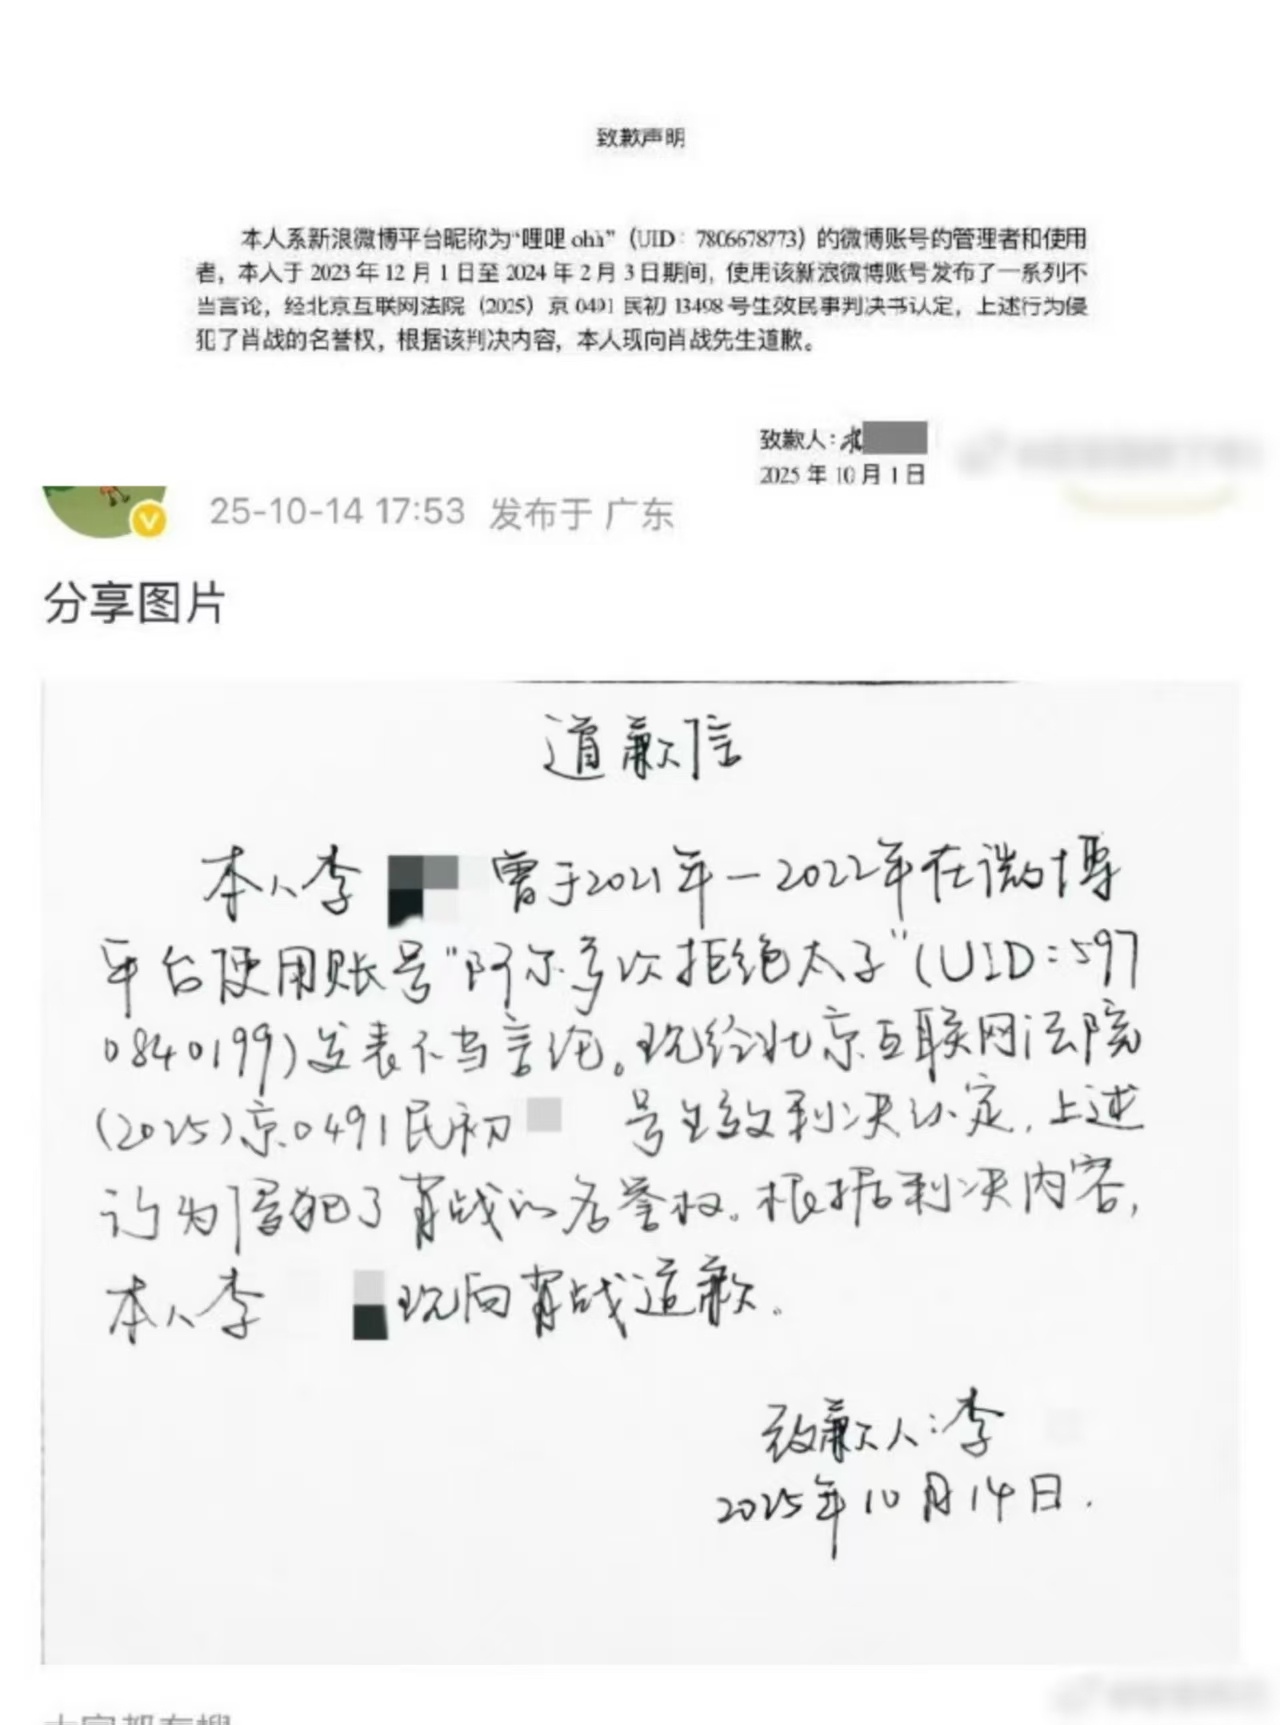 致歉声明
本人系新浪微博平台昵称为“哩哩ohh”（UID：7806678773）的微博账号的管理者和使用
者，本人于 2023 年 12 月 1 日至 2024 年 2 月 3 日期间，使用该新浪微博账号发布了一系列不
当言论，经北京互联网法院（2025）京 0491 民初 13498 号生效民事判决书认定，上述行为侵
犯了肖战的名誉权，根据该判决内容，本人现向肖战先生道歉。
致歉人：
2025 年 10 月 1 日
25-10-14 17:53 发布于 广东
分享图片
道歉信
本人李 曾于2021年-2022年在微博
平台使用账号“阿尔多次拒绝太子”(UID:597
0840199)发表不当言论。现经北京互联网法院
(2025)京0491民初 号生效判决认定,上述
行为侵犯了肖战的名誉权。根据判决内容,
本人李 现向肖战道歉。
致歉人:李
2025年10月14日.